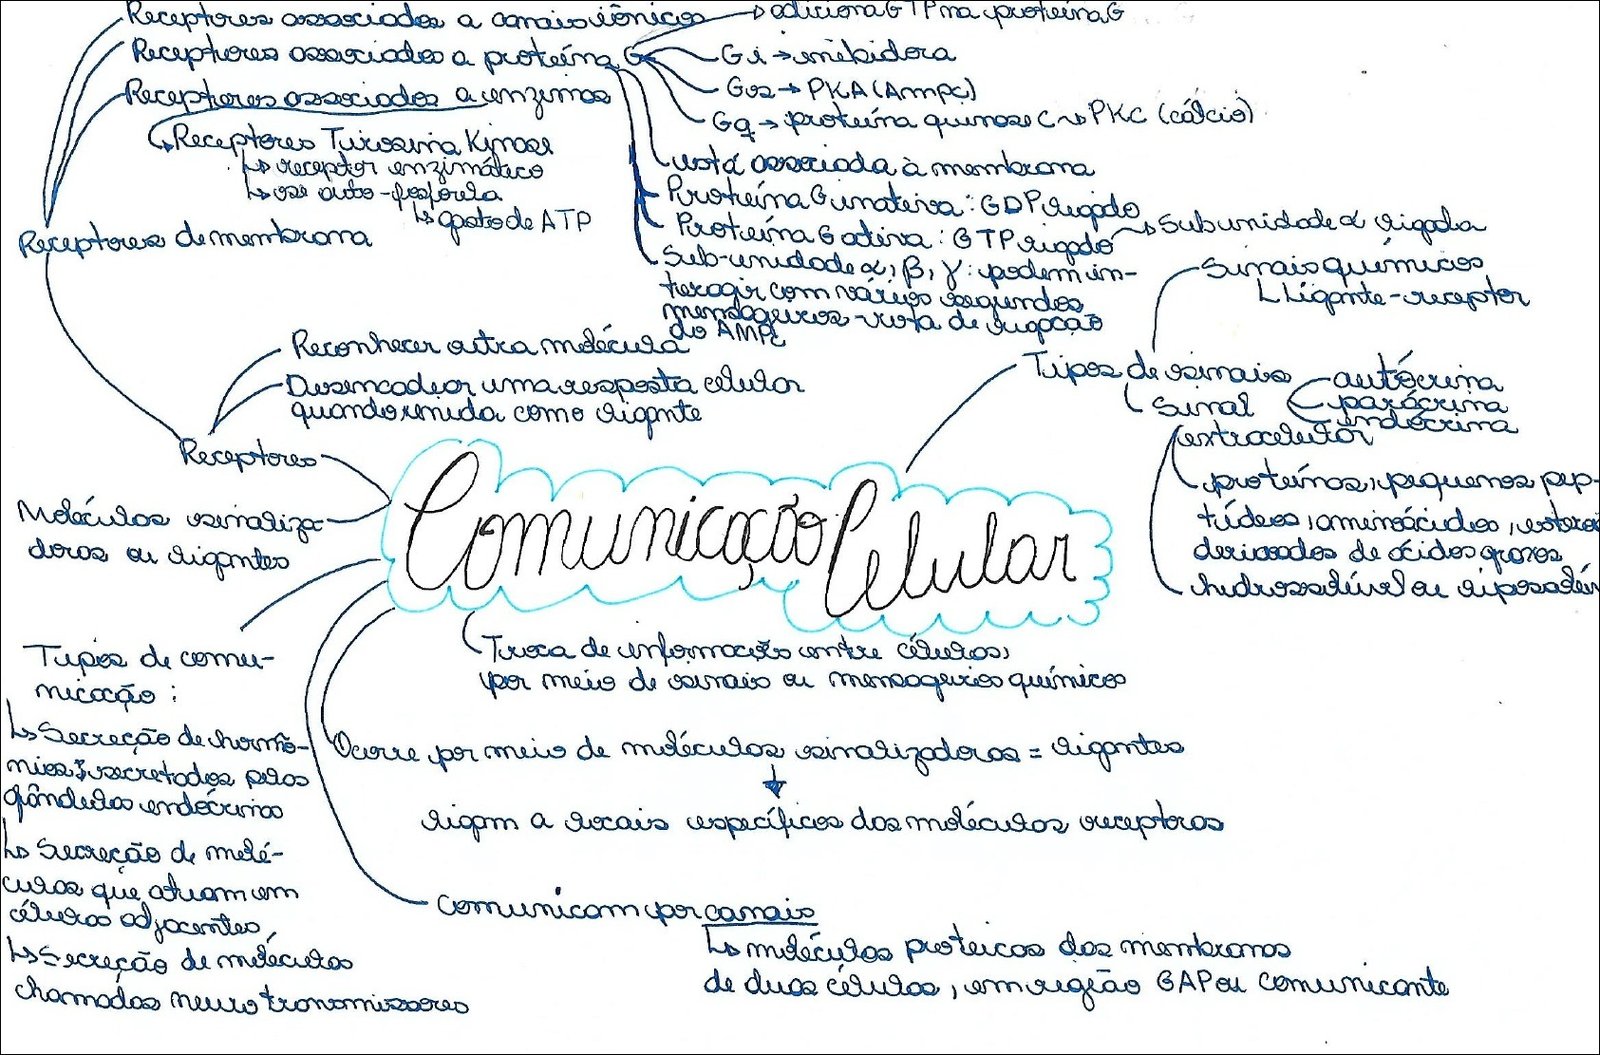 Receptores associados a canais iônicos
Receptores associados a proteína G
Receptores associados a enzimas
↳ Receptores Tirosina Kinase
↳ receptor enzimático
↳ se auto-fosforila
↳ gasto de ATP
Receptores de membrana
→ adiciona GTP na proteína G
Gi → inibidora
Gs → PKA (Ampc)
Gq → proteína quinase C → PKC (cálcio)
está associada à membrana
Proteína G inativa: GDP ligado
Proteína G ativa: GTP ligado → Subunidade α ligada
Sub-unidade α, β, γ: podem in-
teragir com vários segundos
mensageiros - rota de ligação
do AMPc
Reconhecer outra molécula
Desencadear uma resposta celular
quando unida com o ligante
Receptores
Moléculas sinaliza-
doras ou ligantes
Sinais químicos
Ligante-receptor
Tipos de sinais
autócrina
parácrina
endócrina
Sinal
extracelular
proteínas, pequenos pep-
tídeos, aminoácidos,
derivados de ácidos graxos
Comunicação Celular
Troca de informações entre células,
por meio de sinais ou mensageiros químicos
Ocorre por meio de moléculas sinalizadoras = ligantes
↓
ligam a locais específicos das moléculas receptoras
Comunicam por canais
↳ moléculas proteicas das membranas
de duas células, em região GAP ou comunicante
Tipos de comu-
nicação:
↳ Secreção de hormô-
nios secretados pelas
glândulas endócrinas
↳ Secreção de molé-
culas que atuam em
células adjacentes,
↳ Secreção de moléculas
chamadas neurotransmissores